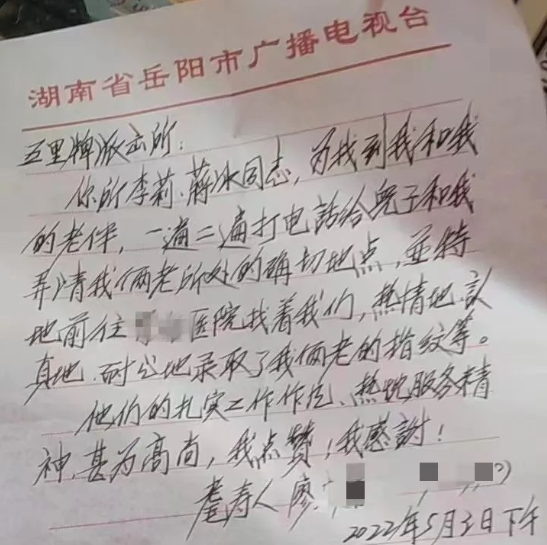 湖南省岳阳市广播电视台
五里牌派出所：
你所李莉、蒋冰同志，为找到我和我
的老伴，一遍二遍打电話给兒子和我
弄清我俩老所处的确切地点，並特
地前往医院找着我们，热情地认
真地、耐心地录取了我俩老的指纹等。
他们的扎实工作作风、热忱服务精
神，甚为高尚，我点赞！我感謝！
耄寿人 廖
2022年5月3日下午